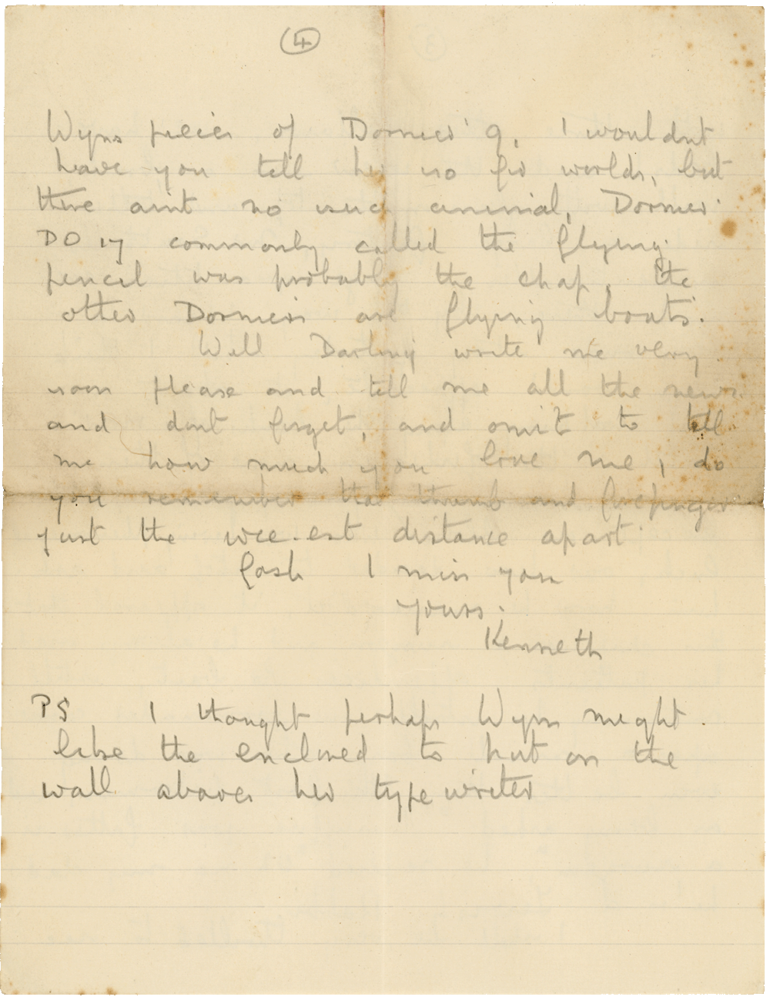 ④
Wyns pieces of Dornier 9, I wouldnt
have you tell her so for worlds, but
there aint no such animal, Dornier
DO 17 commonly called the flying
pencil was probably the chap, the
other Dorniers are flying boats.
Well Darling write me very
soon please and tell me all the news
and dont forget, and omit to tell
me how much you love me, do
you remember that thumb and forefinger
just the wee-est distance apart.
Gosh I miss you
yours.
Kenneth
PS I thought perhaps Wyn might
like the enclosed to put on the
wall above her type writer